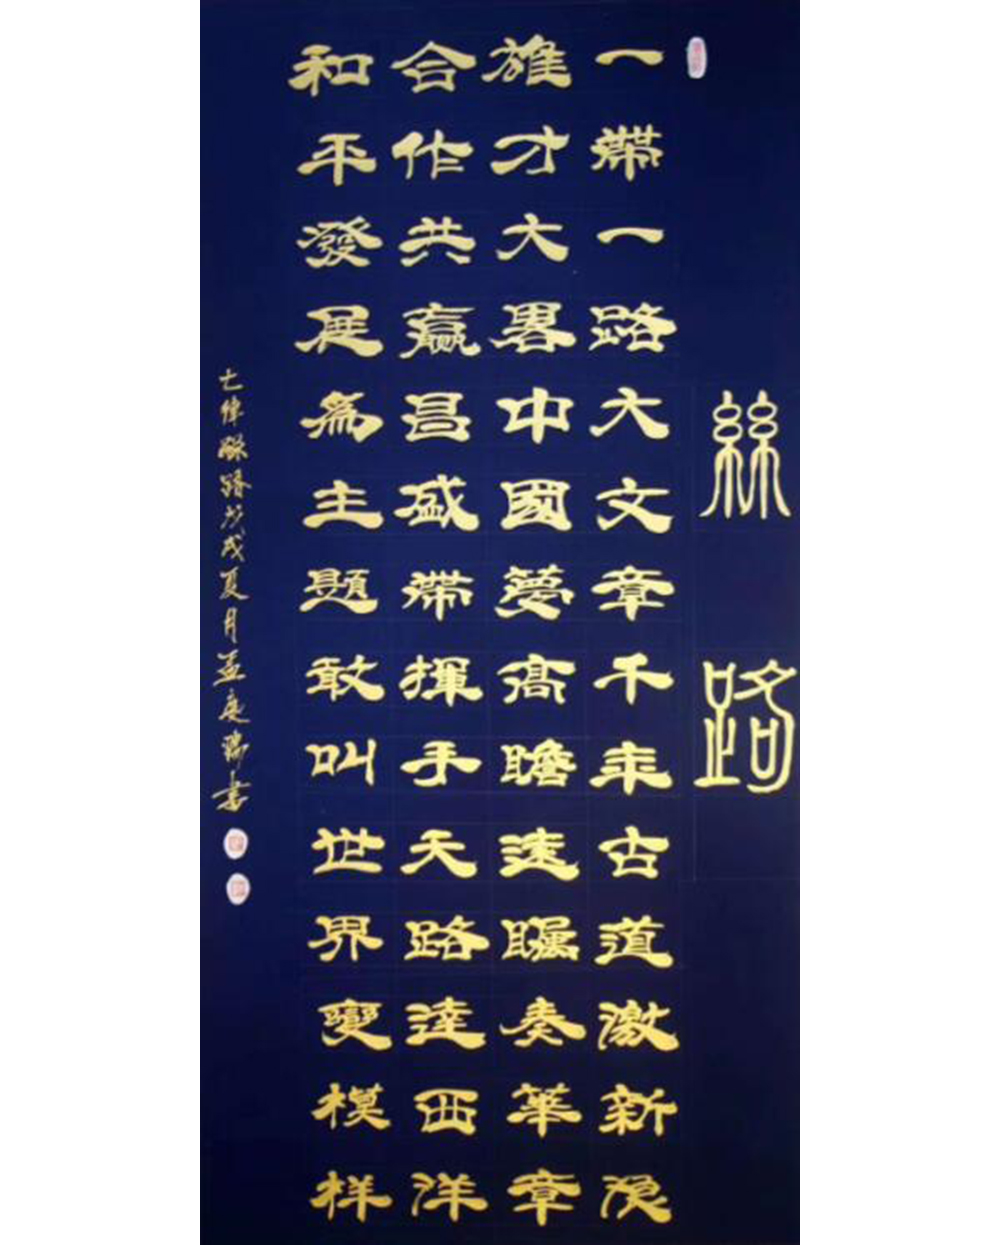 絲路
一帶一路大文章千年古道激新浪
雄才大畧中國夢高瞻遠矚奏華章
合作共贏昌盛帶揮手天路達西洋
和平發展為主題敢叫世界變模样
七律絲路戊戌夏月孟慶瑞書